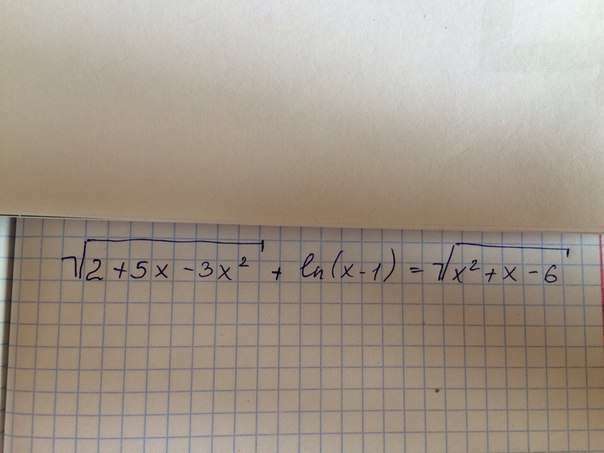 √(2+5x-3x²) + ln(x-1) = √(x²+x-6)